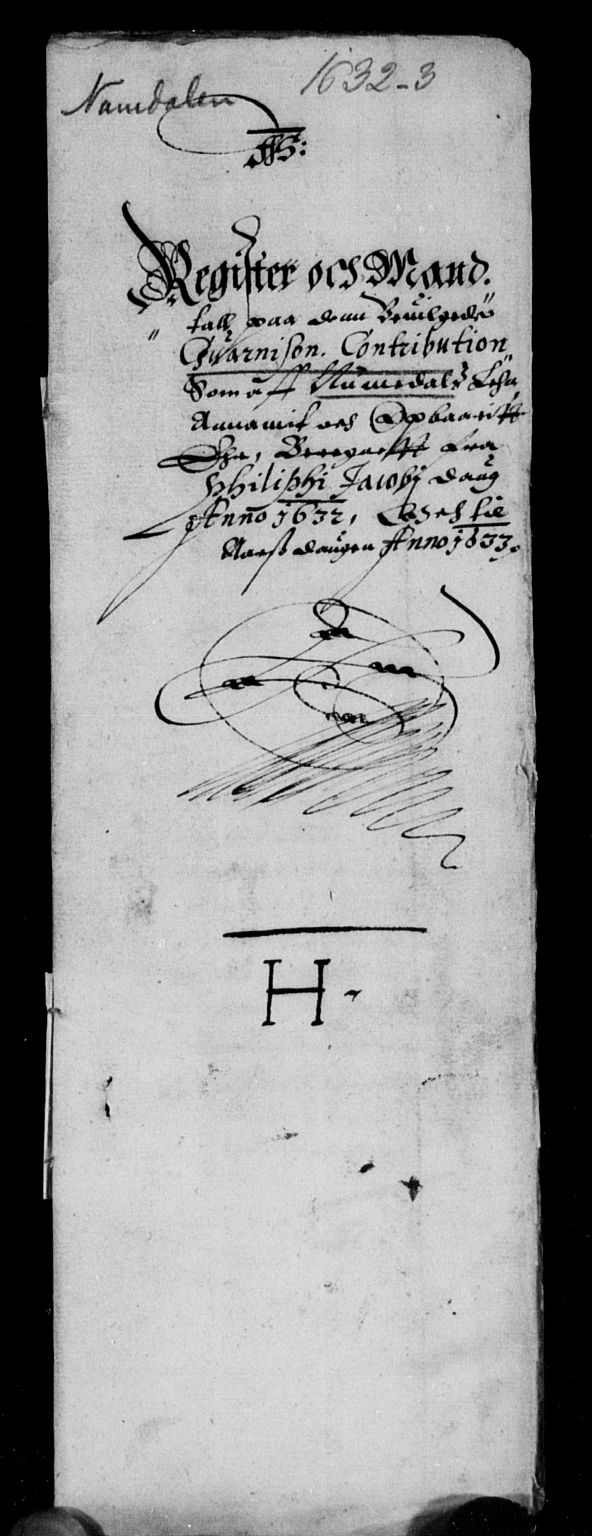 Namdalen 1632-3
Register och Mand.
tall paa denn Beuilgede
Guarnison. Contribution
Som aff Numedals Lehn
Annamit och Opbaaritt
Ehr, Beregnitt fra
Philiphi Jacobj daug
Anno 1632, Och til
Aarsz daugen Anno 1633.
H-